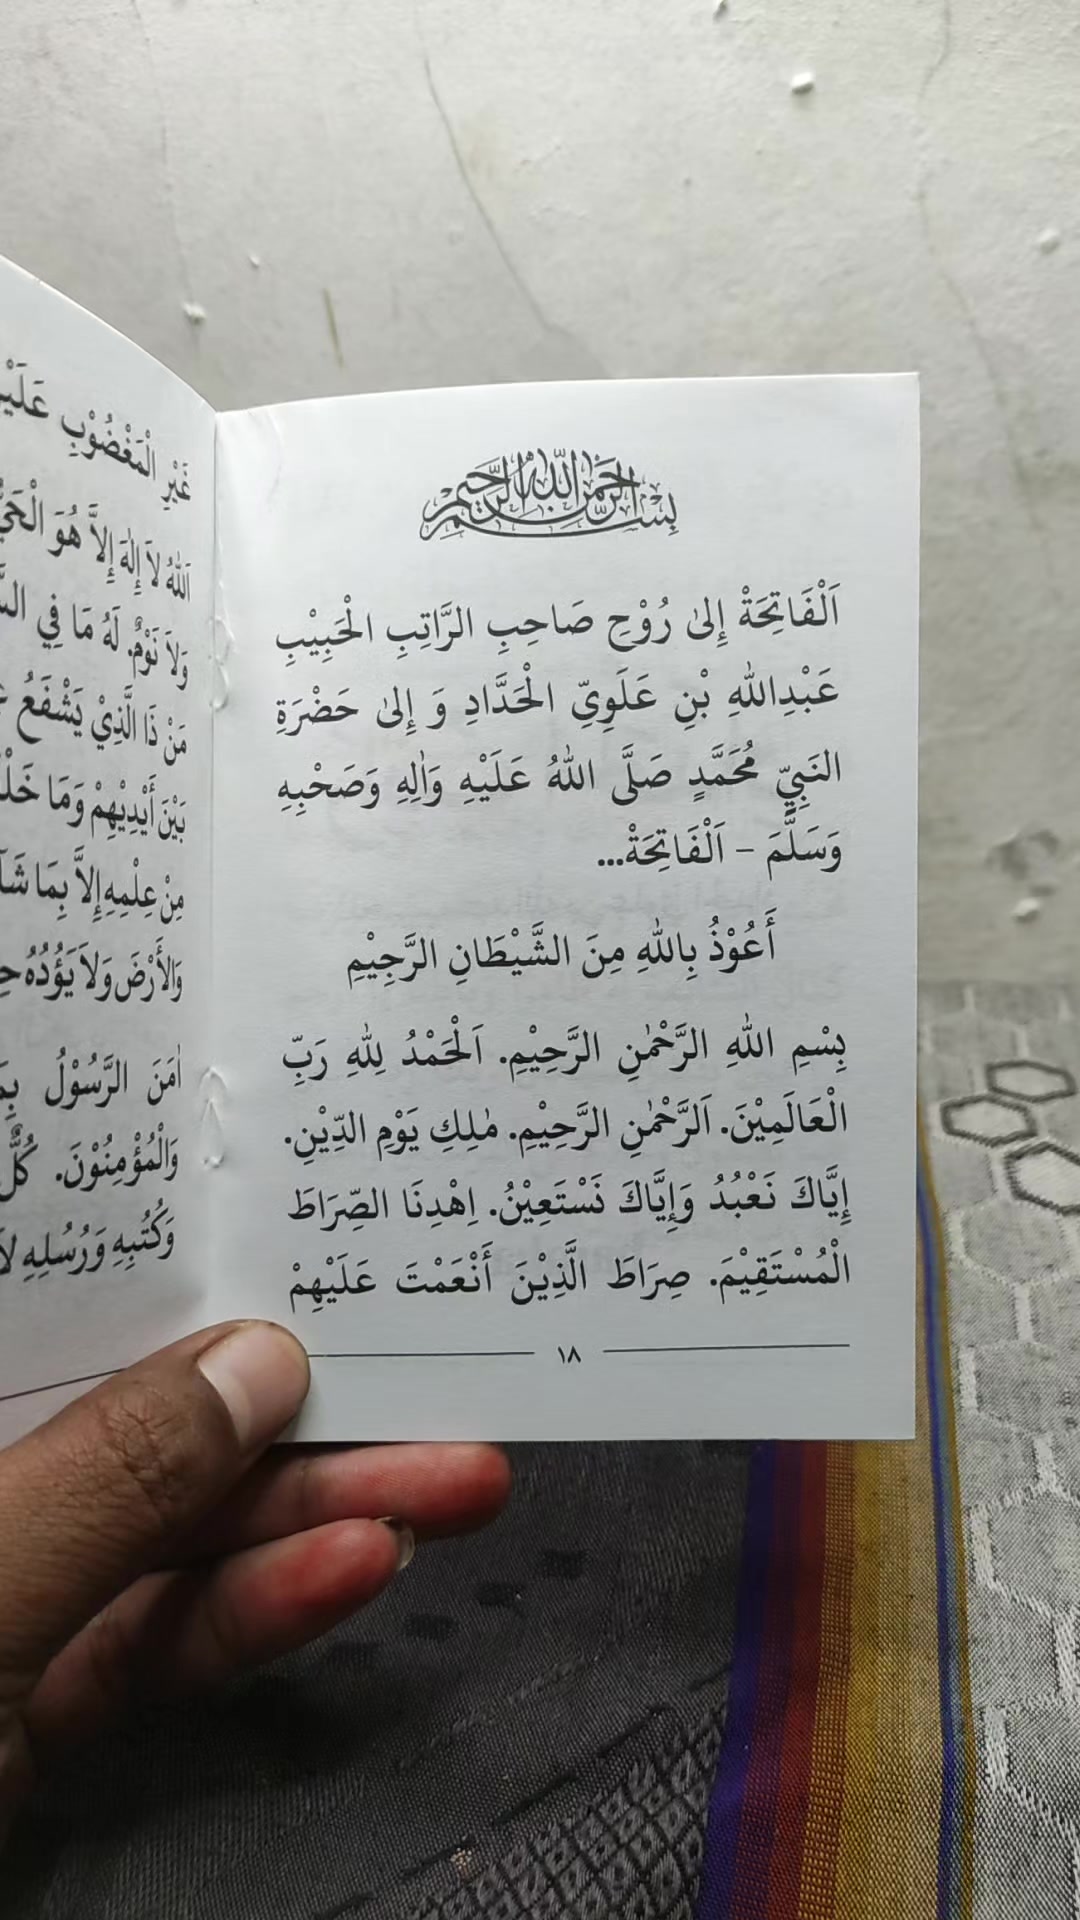 بِسْمِ اللهِ الرَّحْمٰنِ الرَّحِيْمِ
اَلْفَاتِحَةْ إِلىٰ رُوْحِ صَاحِبِ الرَّاتِبِ الْحَبِيْبِ
عَبْدِاللهِ بْنِ عَلَوِيِّ الْحَدَّادِ وَ إِلىٰ حَضْرَةِ
النَبِيِّ مُحَمَّدٍ صَلَّى اللهُ عَلَيْهِ وَاٰلِهِ وَصَحْبِهِ
وَسَلَّمَ – اَلْفَاتِحَةْ...
أَعُوْذُ بِاللهِ مِنَ الشَّيْطَانِ الرَّجِيْمِ
بِسْمِ اللهِ الرَّحْمٰنِ الرَّحِيْمِ. اَلْحَمْدُ لِلهِ رَبِّ
الْعَالَمِيْنَ. اَلرَّحْمٰنِ الرَّحِيْمِ. مٰلِكِ يَوْمِ الدِّيْنِ.
إِيَّاكَ نَعْبُدُ وَإِيَّاكَ نَسْتَعِيْنُ. اِهْدِنَا الصِّرَاطَ
الْمُسْتَقِيْمَ. صِرَاطَ الَّذِيْنَ أَنْعَمْتَ عَلَيْهِمْ
١٨
غَيْرِ الْمَغْضُوْبِ
اَللهُ لاَ إِلٰهَ إِلاَّ هُوَ
وَلاَ نَوْمٌ. لَهُ مَا فِي
مَنْ ذَا الَّذِيْ يَشْفَعُ
بَيْنَ أَيْدِيْهِمْ وَمَا
مِنْ عِلْمِهِ إِلاَّ بِمَا
وَالأَرْضَ وَلاَ يَؤُدُهُ
اٰمَنَ الرَّسُوْلُ
وَالْمُؤْمِنُوْنَ.
وَكُتُبِهِ وَرُسُلِهِ